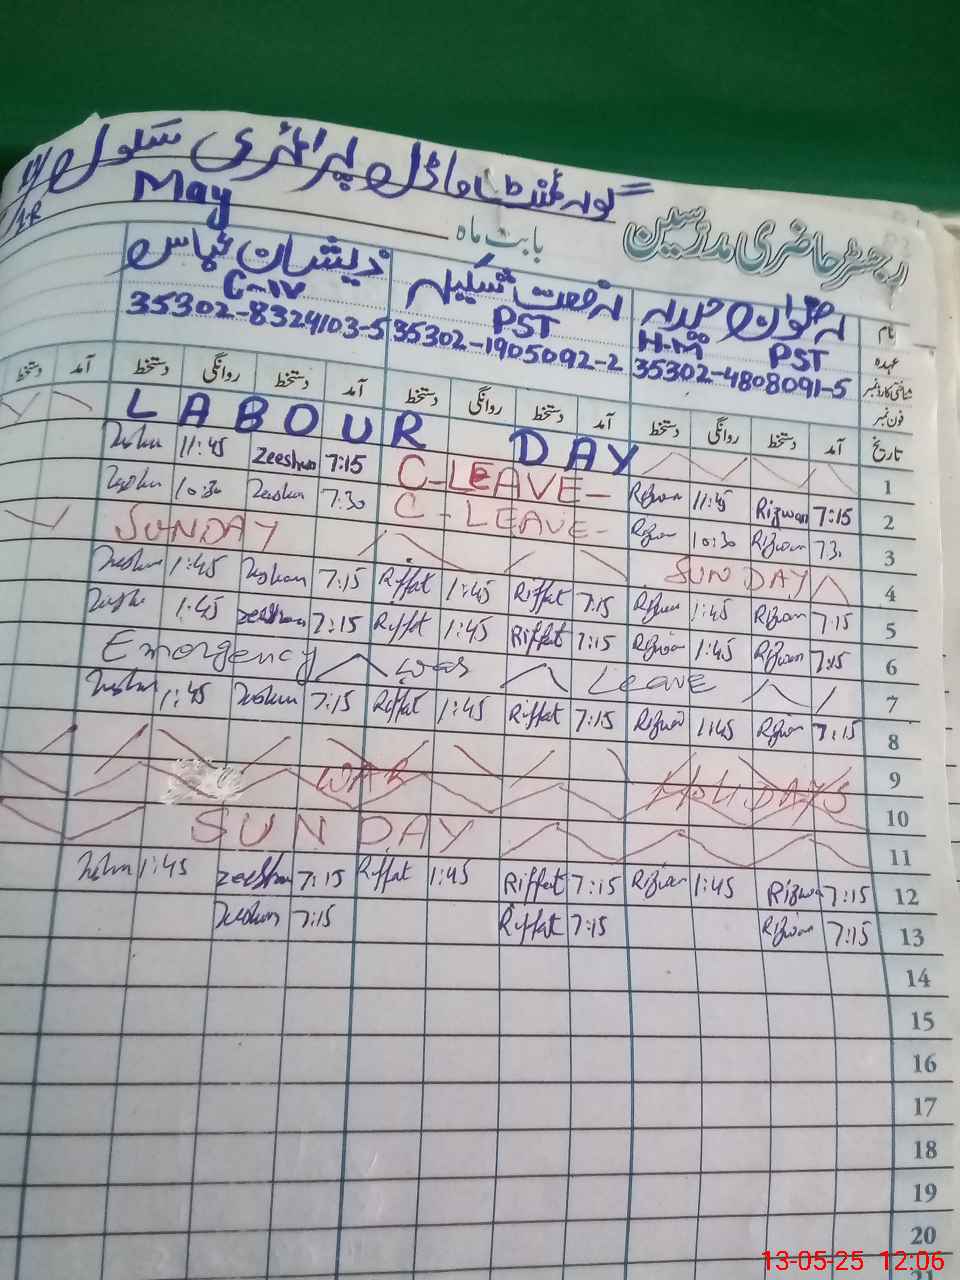 گورنمنٹ ماڈل پرائمری سکول
رجسٹر حاضری مدرسین بابت ماہ May
نام رضوان حیدر رفعت شکیلہ ذیشان عباس
عہدہ H.M PST PST C-IV
شناختی کارڈ نمبر 35302-4808091-5 35302-1905092-2 35302-8324103-5
فون نمبر
تاریخ آمد دستخط روانگی دستخط آمد دستخط روانگی دستخط آمد دستخط روانگی دستخط آمد دستخط
1 LABOUR DAY
2 7:15 Rizwan 11:45 Rizwan C-LEAVE- 7:15 Zeeshan 11:45 Zeeshan
3 7:30 Rizwan 10:30 Rizwan C-LEAVE- 7:30 Zeeshan 10:30 Zeeshan
4 SUNDAY SUNDAY
5 7:15 Rizwan 1:45 Rizwan 7:15 Riffat 1:45 Riffat 7:15 Zeeshan 1:45 Zeeshan
6 7:15 Rizwan 1:45 Rizwan 7:15 Riffat 1:45 Riffat 7:15 Zeeshan 1:45 Zeeshan
7 Emergency Leave
8 7:15 Rizwan 1:45 Rizwan 7:15 Riffat 1:45 Riffat 7:15 Zeeshan 1:45 Zeeshan
9 WAR HOLIDAYS
10
11 SUNDAY
12 7:15 Rizwan 1:45 Rizwan 7:15 Riffat 1:45 Riffat 7:15 Zeeshan 1:45 Zeeshan
13 7:15 Rizwan 7:15 Riffat 7:15 Zeeshan
14
15
16
17
18
19
20
21
13-05-25 12:06